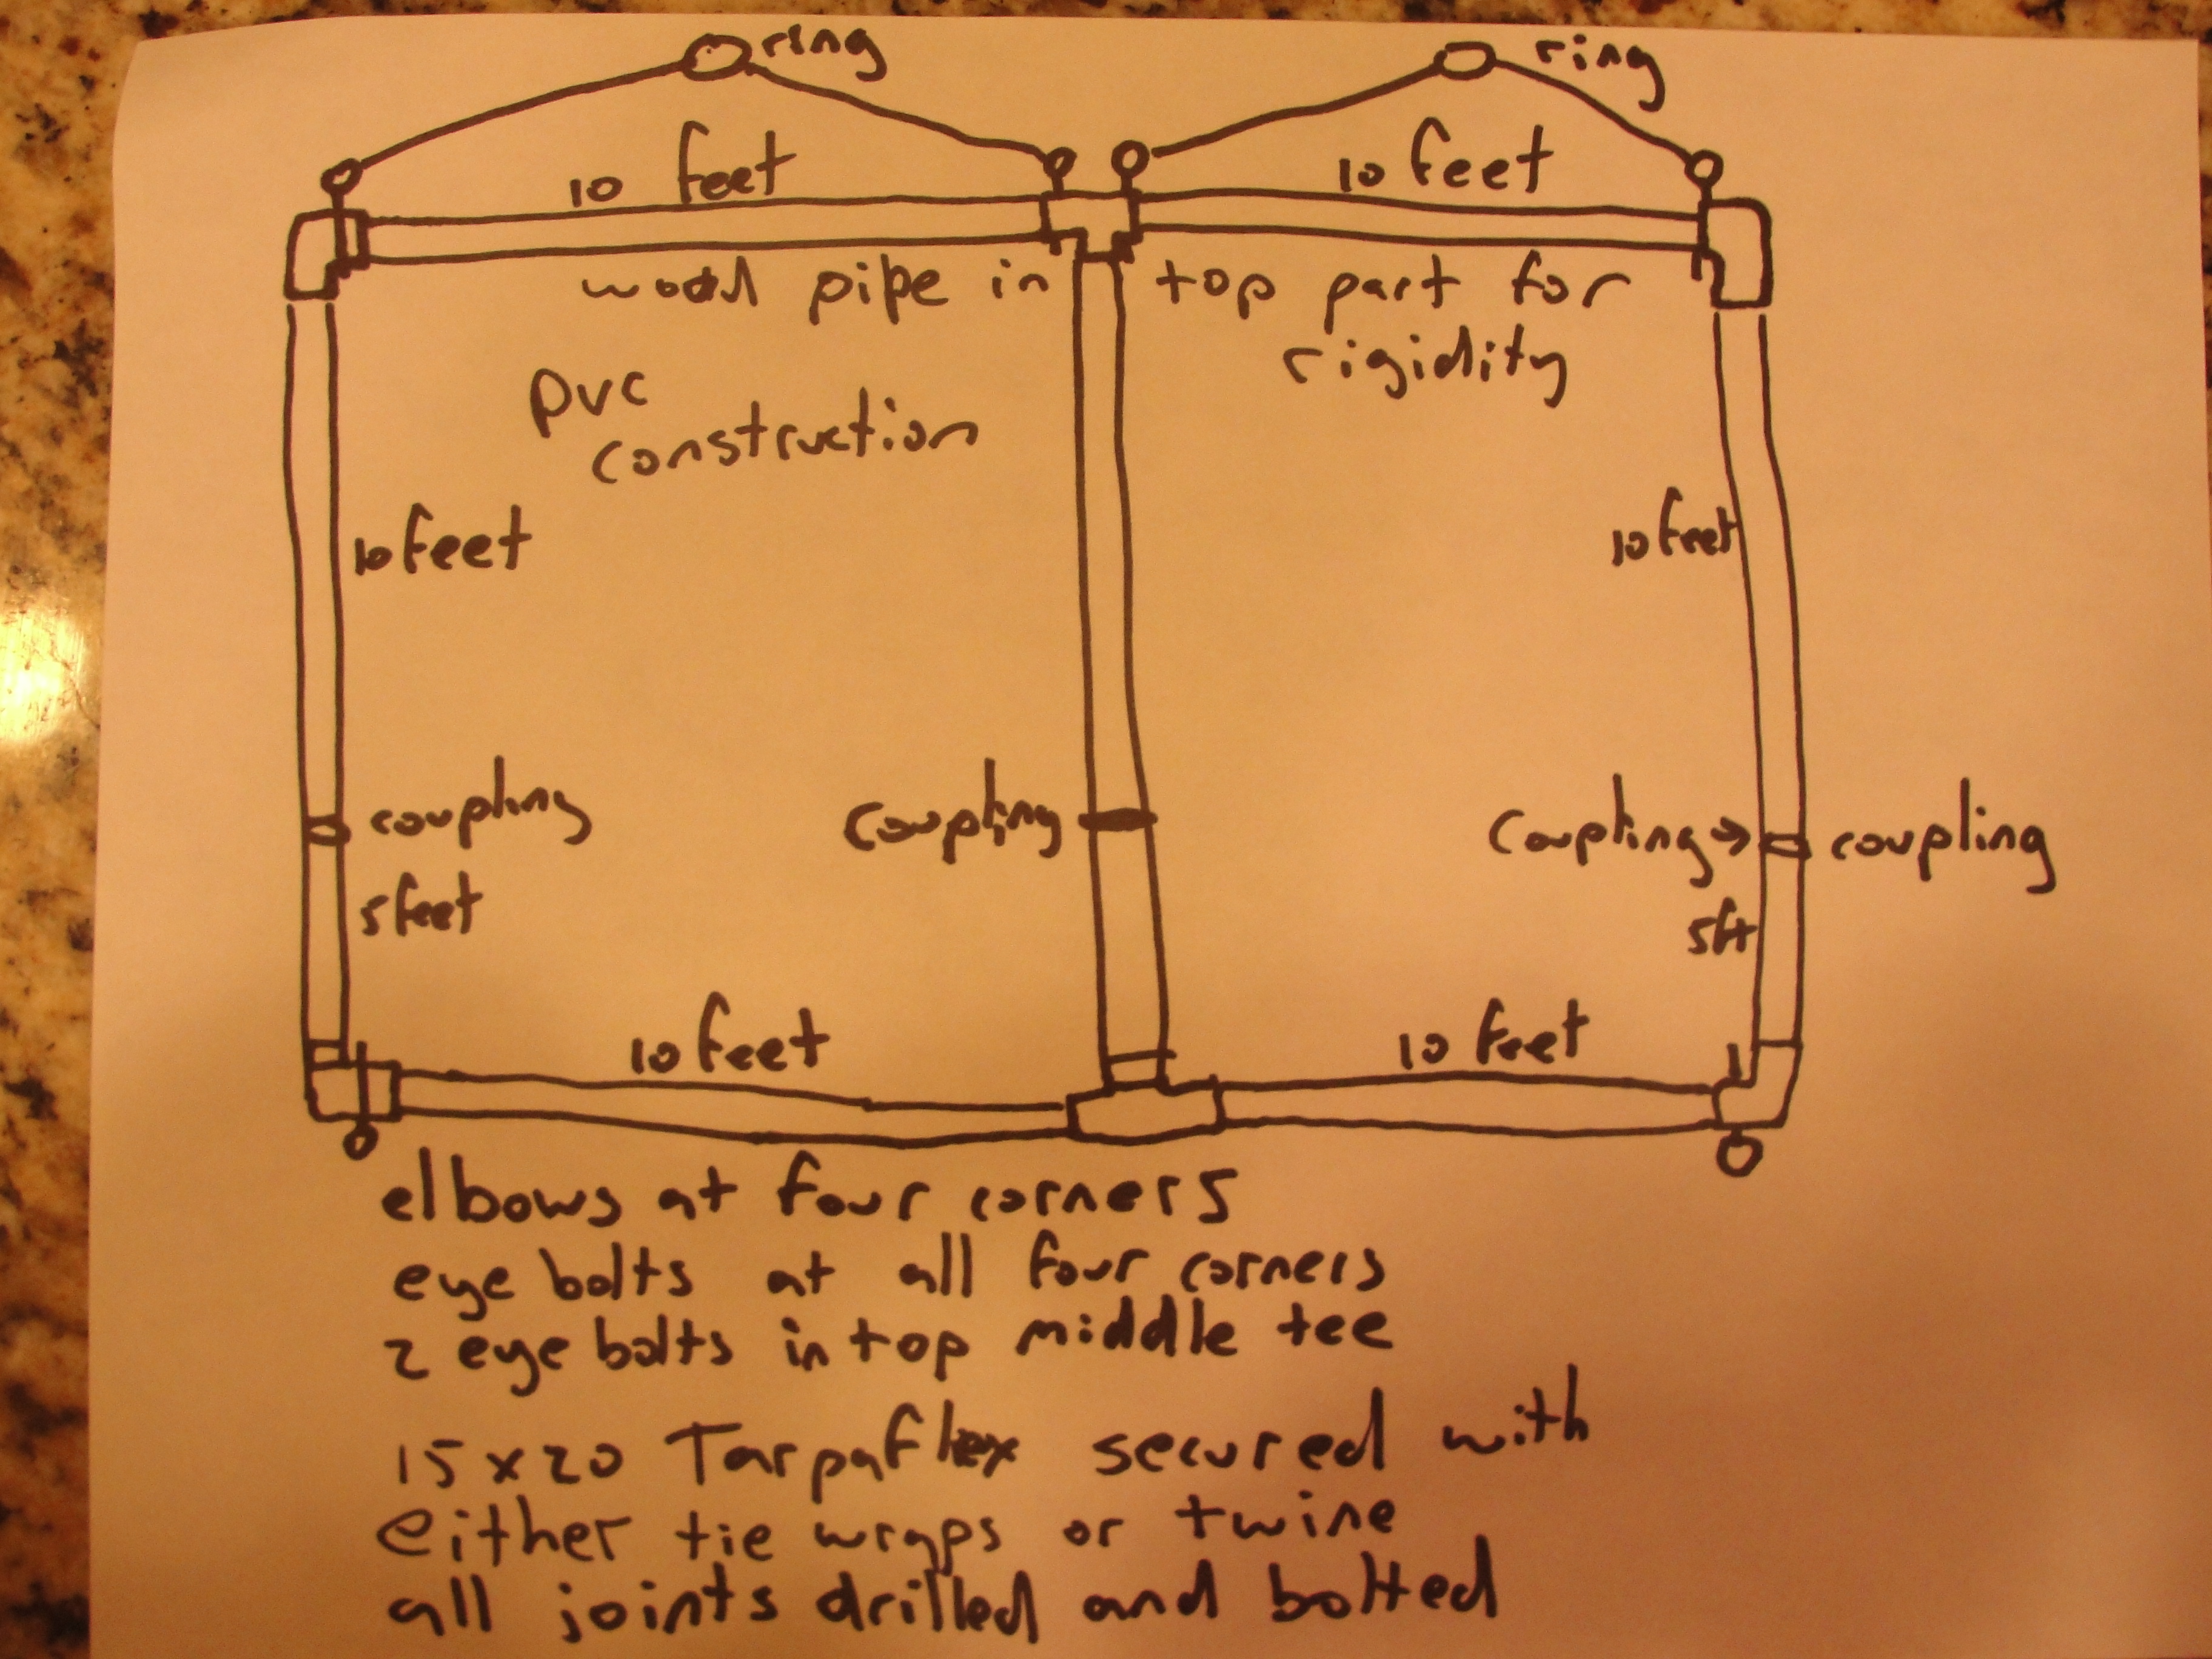 ring
ring
10 feet
10 feet
wood pipe in top part for
rigidity
pvc
construction
10 feet
10 feet
coupling
coupling
coupling→
coupling
5 feet
5ft
10 feet
10 feet
elbows at four corners
eye bolts at all four corners
2 eye bolts in top middle tee
15x20 Tarpaflex secured with
either tie wraps or twine
all joints drilled and bolted